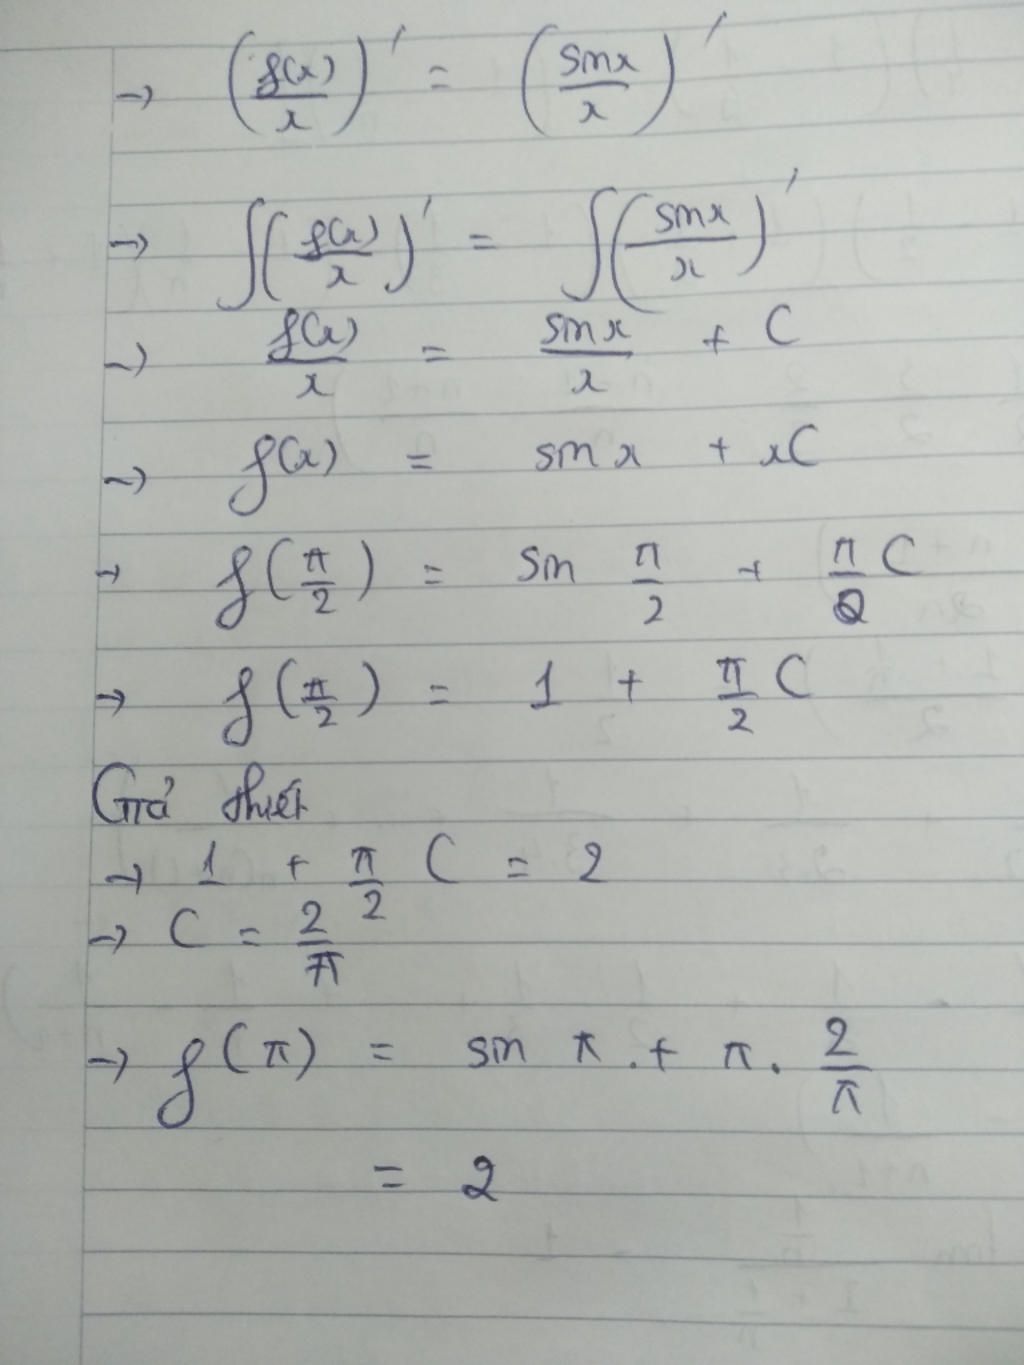 → (f(x)/x)' = (sinx/x)'
→ ∫(f(x)/x)' = ∫(sinx/x)'
→ f(x)/x = sinx/x + C
→ f(x) = sin x + xC
→ f(π/2) = sin π/2 + π/2 C
→ f(π/2) = 1 + π/2 C
Giả thiết
→ 1 + π/2 C = 2
→ C = 2/π
→ f(π) = sin π . + π . 2/π
= 2